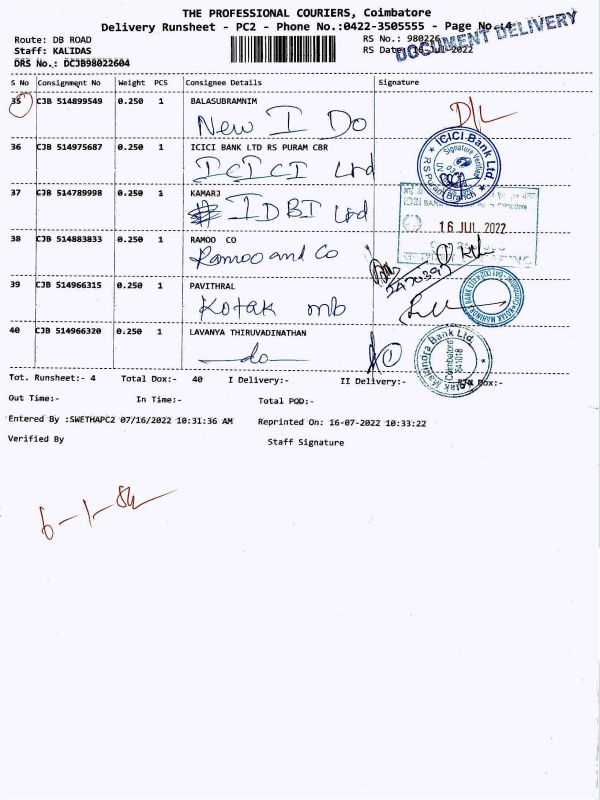 THE PROFESSIONAL COURIERS, Coimbatore
Delivery Runsheet - PC2 - Phone No.:0422-3505555 - Page No.:4
DOCUMENT DELIVERY
Route: DB ROAD
RS No.: 980226
Staff: KALIDAS
RS Date: 16-Jul-2022
DRS No.: DCJB98022604
S No Consignment No Weight PCS Consignee Details Signature
35 CJB 514899549 0.250 1 BALASUBRAMNIM
New I Do
D/L
36 CJB 514975687 0.250 1 ICICI BANK LTD RS PURAM CBR
ICICI Ltd
ICICI Bank Ltd.
Signature Verified
R S Puram Branch
37 CJB 514789998 0.250 1 KAMARJ
IDBI Ltd
16 JUL 2022
38 CJB 514883833 0.250 1 RAMOO CO
Ramoo and Co
39 CJB 514966315 0.250 1 PAVITHRAL
Kotak mb
40 CJB 514966320 0.250 1 LAVANYA THIRUVADINATHAN
do
Kotak Mahindra Bank Ltd.
Coimbatore
641018
Tot. Runsheet:- 4 Total Dox:- 40 I Delivery:- II Delivery:- RTN Dox:-
Out Time:- In Time:- Total POD:-
Entered By :SWETHAPC2 07/16/2022 10:31:36 AM Reprinted On: 16-07-2022 10:33:22
Verified By Staff Signature
6-1-84